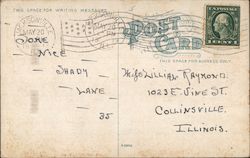 THIS SPACE FOR WRITING MESSAGES
POST
CARD
THIS SPACE FOR ADDRESS ONLY
MAY 20
SOME
NICE
SHADY
LANE
35
WILLIAM RAYMOND.
1023 E. VINE ST.
COLLINSVILLE,
ILLINOIS.